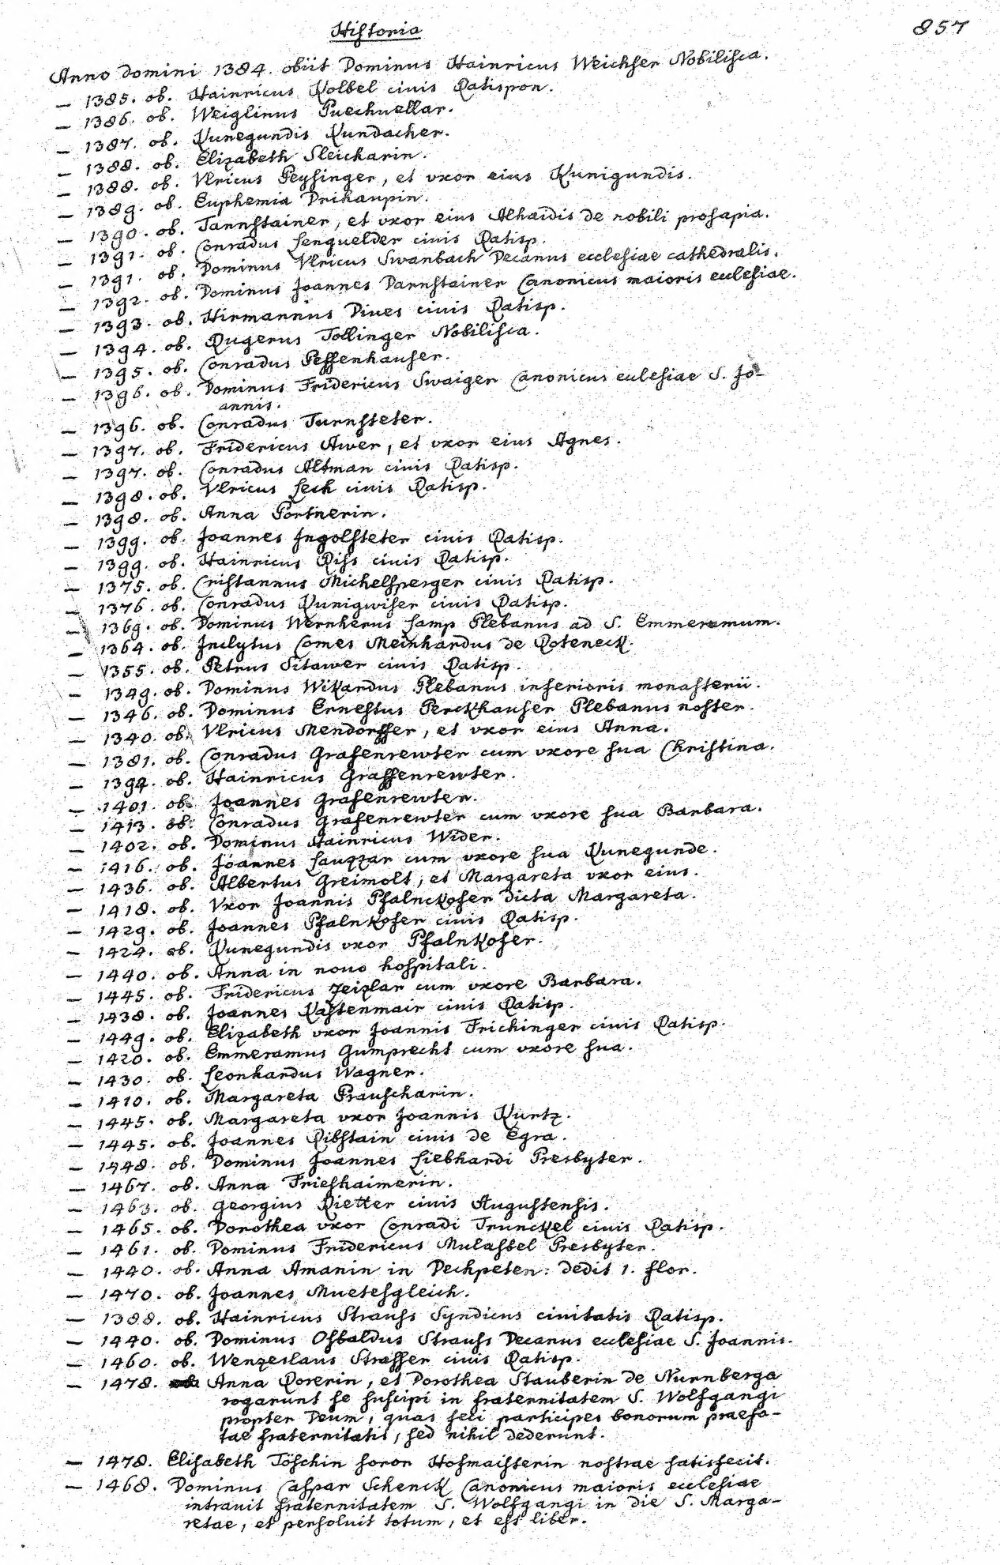 Historia
857
Anno domini 1384. obiit Dominus Hainricus Weichser Nobilista.
— 1385. ob. Hainricus Kolbel civis Ratispon.
— 1386. ob. Weiglinus Puechuellar.
— 1387. ob. Kunegundis Kundacher.
— 1388. ob. Elizabeth Sleicharin.
— 1388. ob. Vlricus Peysinger, et vxor eius Kunigundis.
— 1389. ob. Euphemia Drikaupin.
— 1390. ob. Tannstainer, et vxor eius Alhaidis de nobili prosapia.
— 1391. ob. Conradus Lenguelder civis Ratisp.
— 1391. ob. Dominus Vlricus Swanbach Decanus ecclesiae cathedralis.
— 1392. ob. Dominus Joannes Dannstainer Canonicus maioris ecclesiae.
— 1393. ob. Hirmannus Dives civis Ratisp.
— 1394. ob. Rugerus Tollinger Nobilista.
— 1395. ob. Conradus Peffenhauser.
— 1396. ob. Dominus Fridericus Swaiger Canonicus eclesiae S. Jo-
annis.
— 1396. ob. Conradus Turnsteter.
— 1397. ob. Fridericus Awer, et vxor eius Agnes.
— 1397. ob. Conradus Altman civis Ratisp.
— 1398. ob. Vlricus Lech civis Ratisp.
— 1398. ob. Anna Portnerin.
— 1399. ob. Joannes Ingolsteter civis Ratisp.
— 1399. ob. Hainricus Riss civis Ratisp.
— 1375. ob. Cristannus Michelsperger civis Ratisp.
— 1376. ob. Conradus Kunigwiser civis Ratisp.
— 1369. ob. Dominus Wernherus Lamp Plebanus ad S. Emmeramum.
— 1364. ob. Inclytus Comes Meinhardus de Roteneck.
— 1355. ob. Petrus Sitawer civis Ratisp.
— 1349. ob. Dominus Wikardus Plebanus inferioris monasterii.
— 1346. ob. Dominus Ernestus Perckhauser Plebanus noster.
— 1340. ob. Vlricus Mendorffer, et vxor eius Anna.
— 1381. ob. Conradus Grafenrewter cum vxore sua Christina.
— 1394. ob. Hainricus Graffenrewter.
— 1401. ob. Joannes Grafenrewter.
— 1413. ob. Conradus Grafenrewter cum vxore sua Barbara.
— 1402. ob. Dominus Hainricus Wider.
— 1416. ob. Joannes Lauzzar cum vxore sua Kunegunde.
— 1436. ob. Albertus Greimolt, et Margareta vxor eius.
— 1418. ob. Vxor Joannis Pfalnckofer dicta Margareta.
— 1429. ob. Joannes Pfalnkofer civis Ratisp.
— 1424. ob. Kunegundis vxor Pfalnkofer.
— 1440. ob. Anna in nouo hospitali.
— 1445. ob. Fridericus Zeizlar cum vxore Barbara.
— 1438. ob. Joannes Kastenmair civis Ratisp.
— 1449. ob. Elizabeth vxor Joannis Frichinger civis Ratisp.
— 1420. ob. Emmeramus Gumprecht cum vxore sua.
— 1430. ob. Leonhardus Wagner.
— 1410. ob. Margareta Prauscharin.
— 1445. ob. Margareta vxor Joannis Kurtz.
— 1445. ob. Joannes Ribstain civis de Egra.
— 1448. ob. Dominus Joannes Liebhardi Presbyter.
— 1467. ob. Anna Friesshaimerin.
— 1463. ob. Georgius Rietter civis Augustensis.
— 1465. ob. Dorothea vxor Conradi Trunckel civis Ratisp.
— 1461. ob. Dominus Fridericus Mulastel Presbyter.
— 1440. ob. Anna Amanin in Dechpeten: dedit 1. flor.
— 1470. ob. Joannes Muetesgleich.
— 1388. ob. Hainricus Strauss Syndicus civitatis Ratisp.
— 1440. ob. Dominus Osbaldus Strauss Decanus ecclesiae S. Joannis.
— 1460. ob. Wenzeslaus Strasser civis Ratisp.
— 1478. Anna Rorerin, et Dorothea Stauberin de Nurnberga
rogarunt se suscipi in fraternitatem S. Wolfgangi
propter Deum, quas feci participes bonorum praefa-
tae fraternitatis, sed nihil dederunt.
— 1478. Elisabeth Töschin soror Hofmaisterin nostrae satisfecit.
— 1468. Dominus Caspar Schenck Canonicus maioris ecclesiae
intravit fraternitatem S. Wolfgangi in die S. Marga-
retae, et persoluit totum, et est liber.